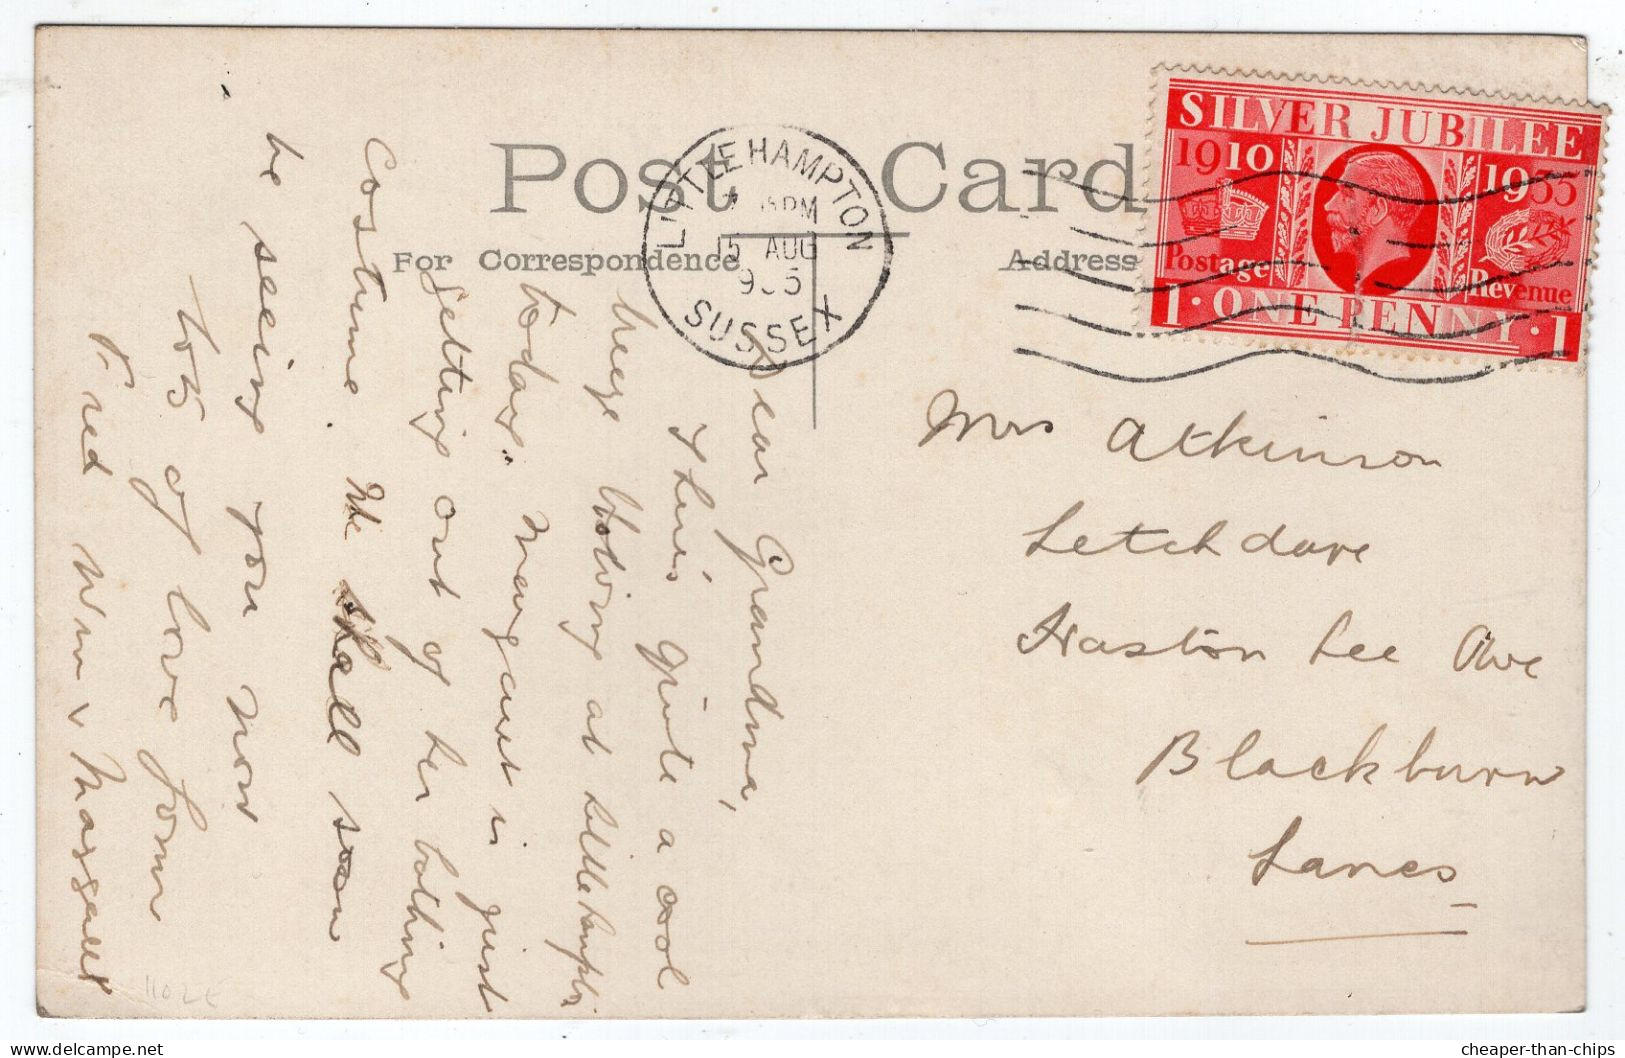 Post Card
For Correspondence
Address
LITTLEHAMPTON
PM
15 AUG
SUSSEX
SILVER JUBILEE
1910 1935
Postage Revenue
1 · ONE PENNY · 1
Mrs Atkinson
Letchdare
Haston Lee Ave
Blackburn
Lancs
Dear Grandma,
There's quite a cool
breeze blowing at Littlehampton
today. Margaret is just
getting out of her bathing
Costume. We shall soon
be seeing you now
lots of love from
Fred Win & Margaret
1102E
cheaper-than-chips